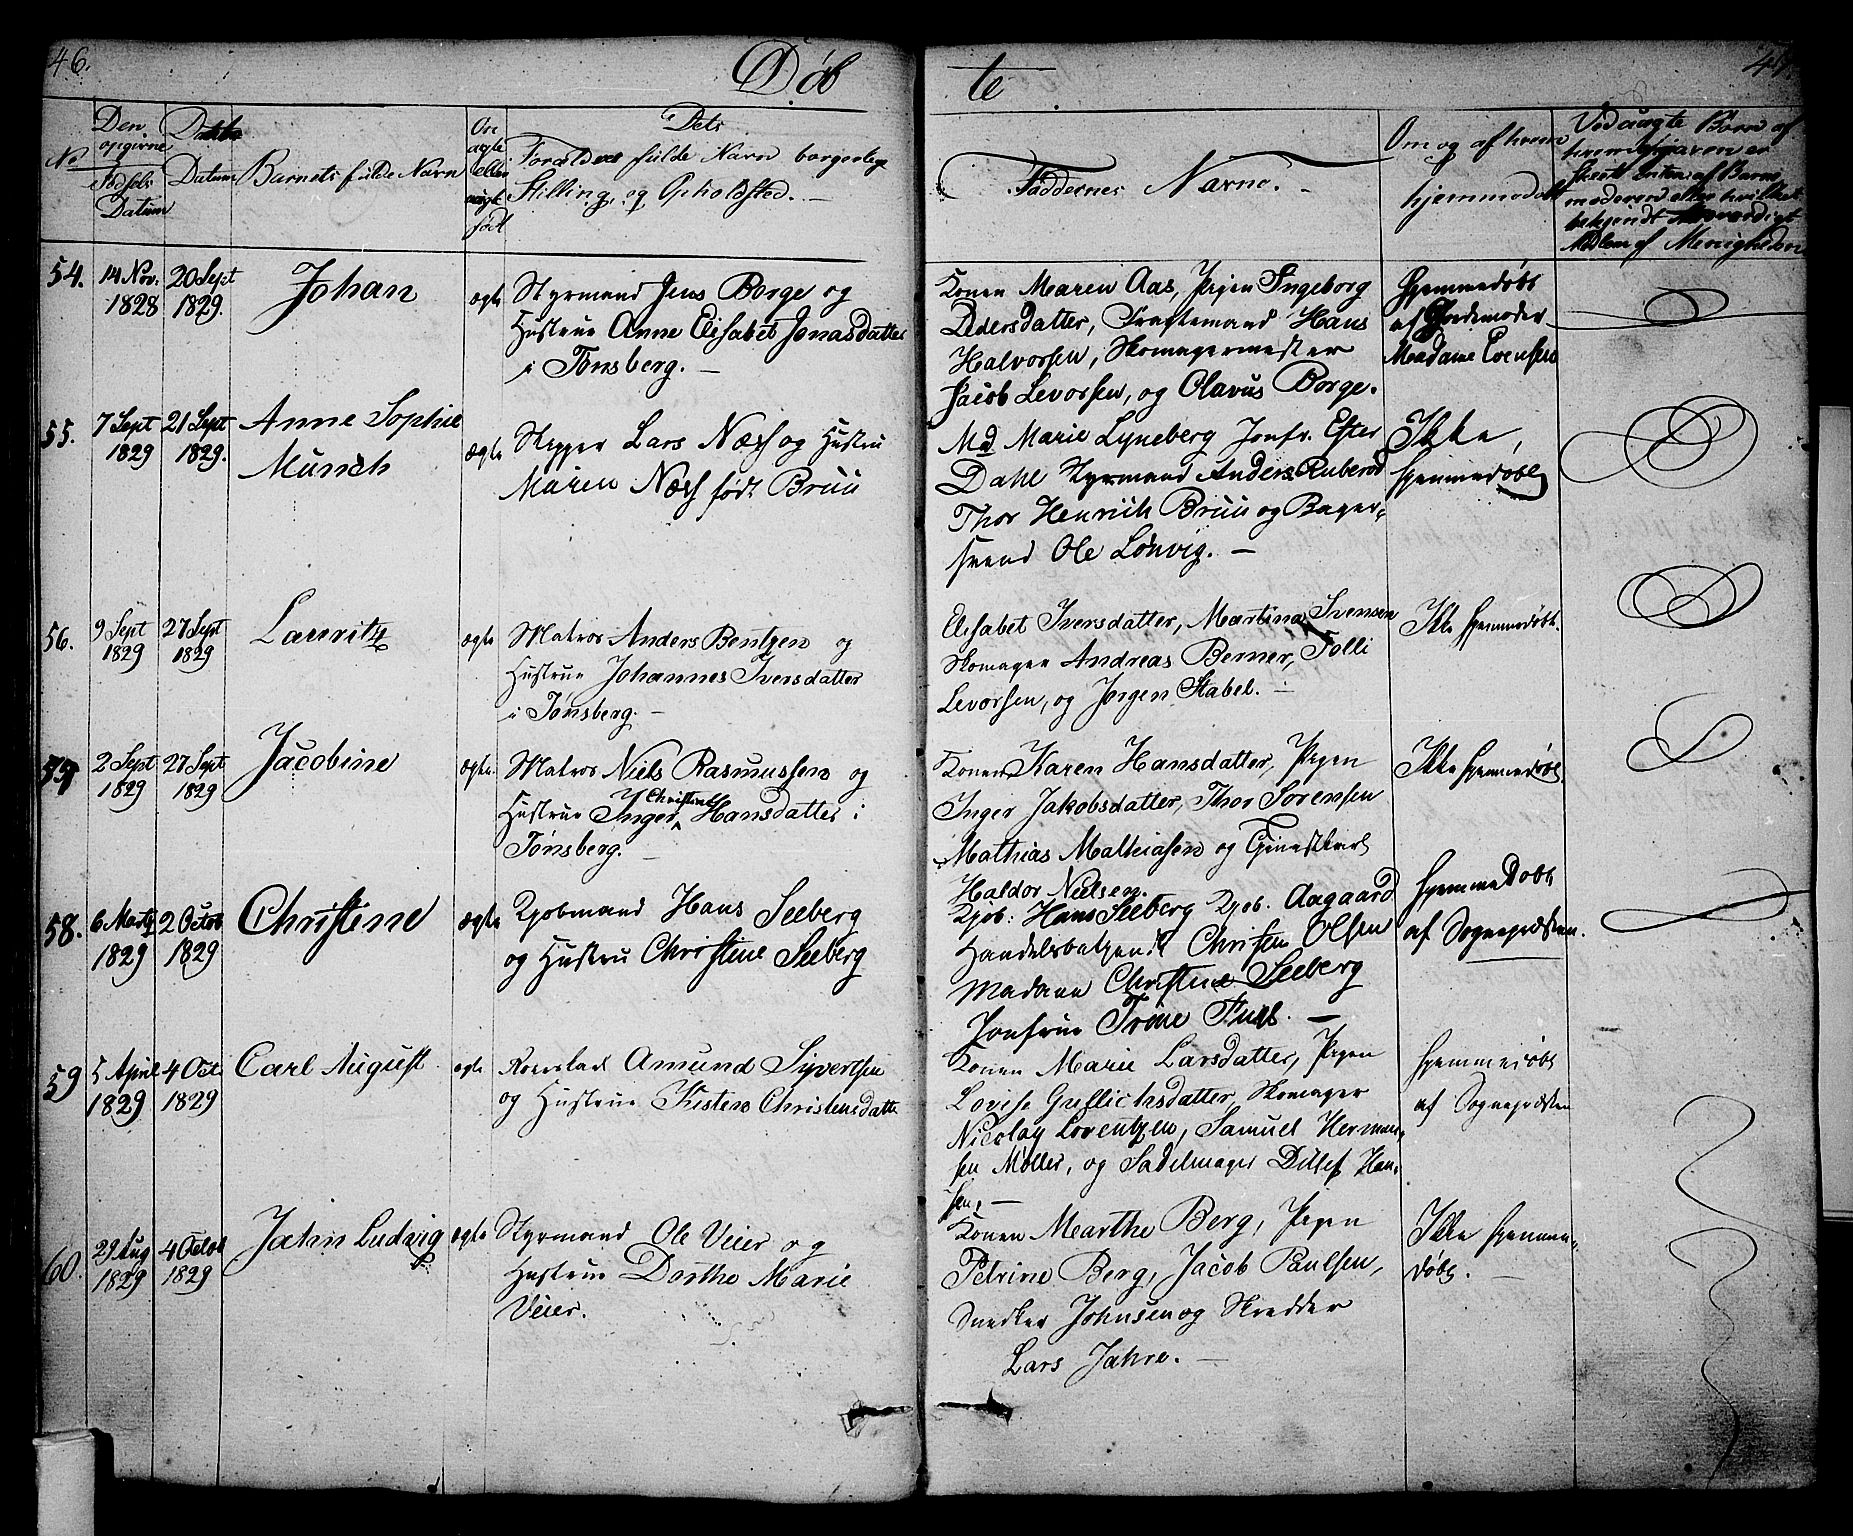 46.
Døb
te
47.
No
Den opgivne Fødsels Datum
Datum
Barnets fulde Navn
Om ægte eller uægte født
Dets
Forældres fulde Navn borgerlige
Stilling, og Opholdsted. —
Faddernes Navne. —
Om og af hvem
hjemmedøbt
Ved uægte Børn af
hvem Opgaven er
skeet enten af Barne
moderen eller hvilket
bekjendt troværdigt
Medlem af Menigheden
54.
14 Nov.
1828
20 Sept
1829.
Johan
ægte
Styrmand Jens Borge og
Hustrue Anne Elisabet Jonasdatter
i Tønsberg. —
Konen Maren Aas, Pigen Ingeborg
Pedersdatter, Tragtemand Hans
Halvorsen, Skomagermester
Jacob Levorsen, og Olavus Borge.
Hjemmedøbt
af Jordemoder
Madame Evensen
55.
7 Sept
1829
21 Sept
1829.
Anne Sophie
Munch
ægte
Skipper Lars Næss og Hustru
Maren Næss født Bruu
Md Marie Lyneberg Jonfr. Ester
Dahl Styrmand Anders Ruberod
Thor Henrich Bruu og Bager-
svend Ole Lønvig. —
Ikke,
hjemmedøbt
56.
9 Sept
1829
27 Sept
1829
Lauritz
ægte
Matros Anders Bentzen og
Hustrue Johannes Iversdatter
i Tønsberg. —
Elisabet Iversdatter, Martina Svensen
Skomager Andreas Berner, Tolli
Levorsen, og Jørgen Stabel. —
Ikke hjemmedøbt.
57
2 Sept
1829
27 Sept
1829
Jacobine
ægte.
Matros Niels Rasmussen og
Hustrue Inger Christine Hansdatter i
Tønsberg. —
Konen Karen Hansdatter, Pigen
Inger Jakobsdatter, Thor Sørensen
Mathias Mathiasen og Tjenestkarl
Haldor Nielsen.
Ikke hjemmedøbt
58.
6 Martz
1829
2 Octob
1829
Christine
ægte
Kjøbmand Hans Seeberg
og Hustru Christine Seeberg
Kjøb: Hans Seeberg Kjøb. Aagaard
Handelsbetjent Christen Olsen
Madame Christine Seeberg
Jomfrue Trine Fuxs. —
hjemmedøbt
af Sognepræsten.
59
5 April
1829
4 Oct.
1829
Carl August
ægte
Amund Sivertsen
og Hustrue Kisten Christensdatt
Konen Marie Larsdatter, Pigen
Lovise Gullichsdatter, Skomager
Nicolay Lorentzen, Samuel Herman-
sen Møller, og Sadelmager Ditlef Han-
sen, —
hjemmedøbt
af Sognepræsten
60.
29 Aug
1829
4 Octob
1829
Jahn Ludvig
ægte
Styrmand Ole Veier og
Hustrue Dorthe Marie
Veier.
Konen Marthe Berg, Pigen
Petrine Berg, Jacob Paulsen,
Snedker Johnsen og Skredder
Lars Jahre. —
Ikke hjemme-
døbt. —